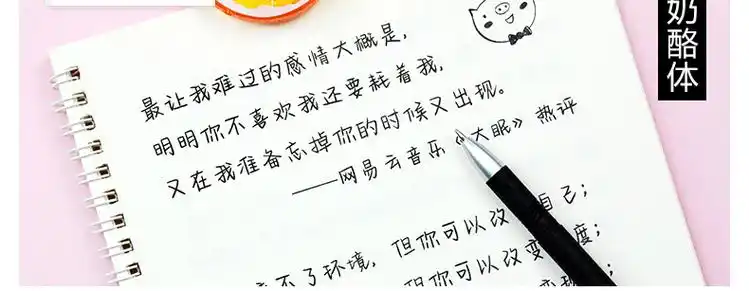 奶酪体
最让我难过的感情大概是，
明明你不喜欢我还要耗着我，
又在我准备忘掉你的时候又出现。
——网易云音乐《大眠》热评
不了环境，但你可以改 自己；
但你可以改变 度；